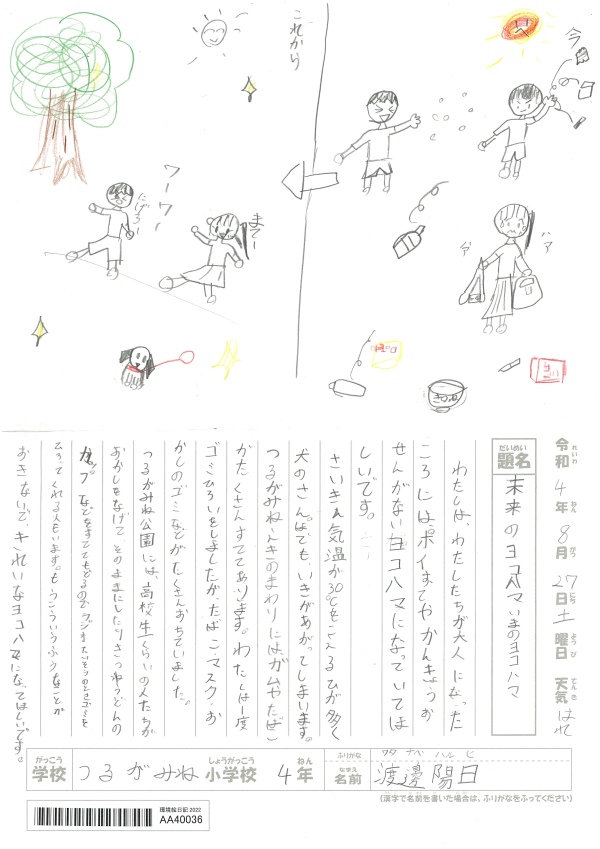 今
暑
これから
ハア
ハア
まてー
ワーワー
にげろー
令和4年8月27日土曜日 天気はれ
れいわ ねん がつ にち ようび てんき
だいめい
題名
未来のヨコハマいまのヨコハマ
わたしは、わたしたちが大人になった
ころには、ポイすてやかんきょうお
せんがないヨコハマになっていてほ
しいです。
さいきん気温が30℃もこえるひが多く
犬のさんぽでも、いきがあがってしまいます。
つるがみねえきのまわりにはガムやたばこ
がたくさんすててあります。わたしは一度
ゴミひろいをしましたが、たばこ・マスク・お
かしのゴミなどがたくさんおちていました。
つるがみね公園には、高校生くらいの人たちが
おかしをなげて、そのままにしたり
カップなどをすててもどるので
ひろってくれる人もいます。もうこういうふうなことが
おきないで、きれいなヨコハマになってほしいです。
がっこう しょうがっこう ねん
学校 つるがみね 小学校 4年
ふりがな ワタナベ ハルヒ
なまえ
名前 渡邊陽日
(漢字で名前を書いた場合は、ふりがなをふってください)
環境絵日記 2022
AA40036